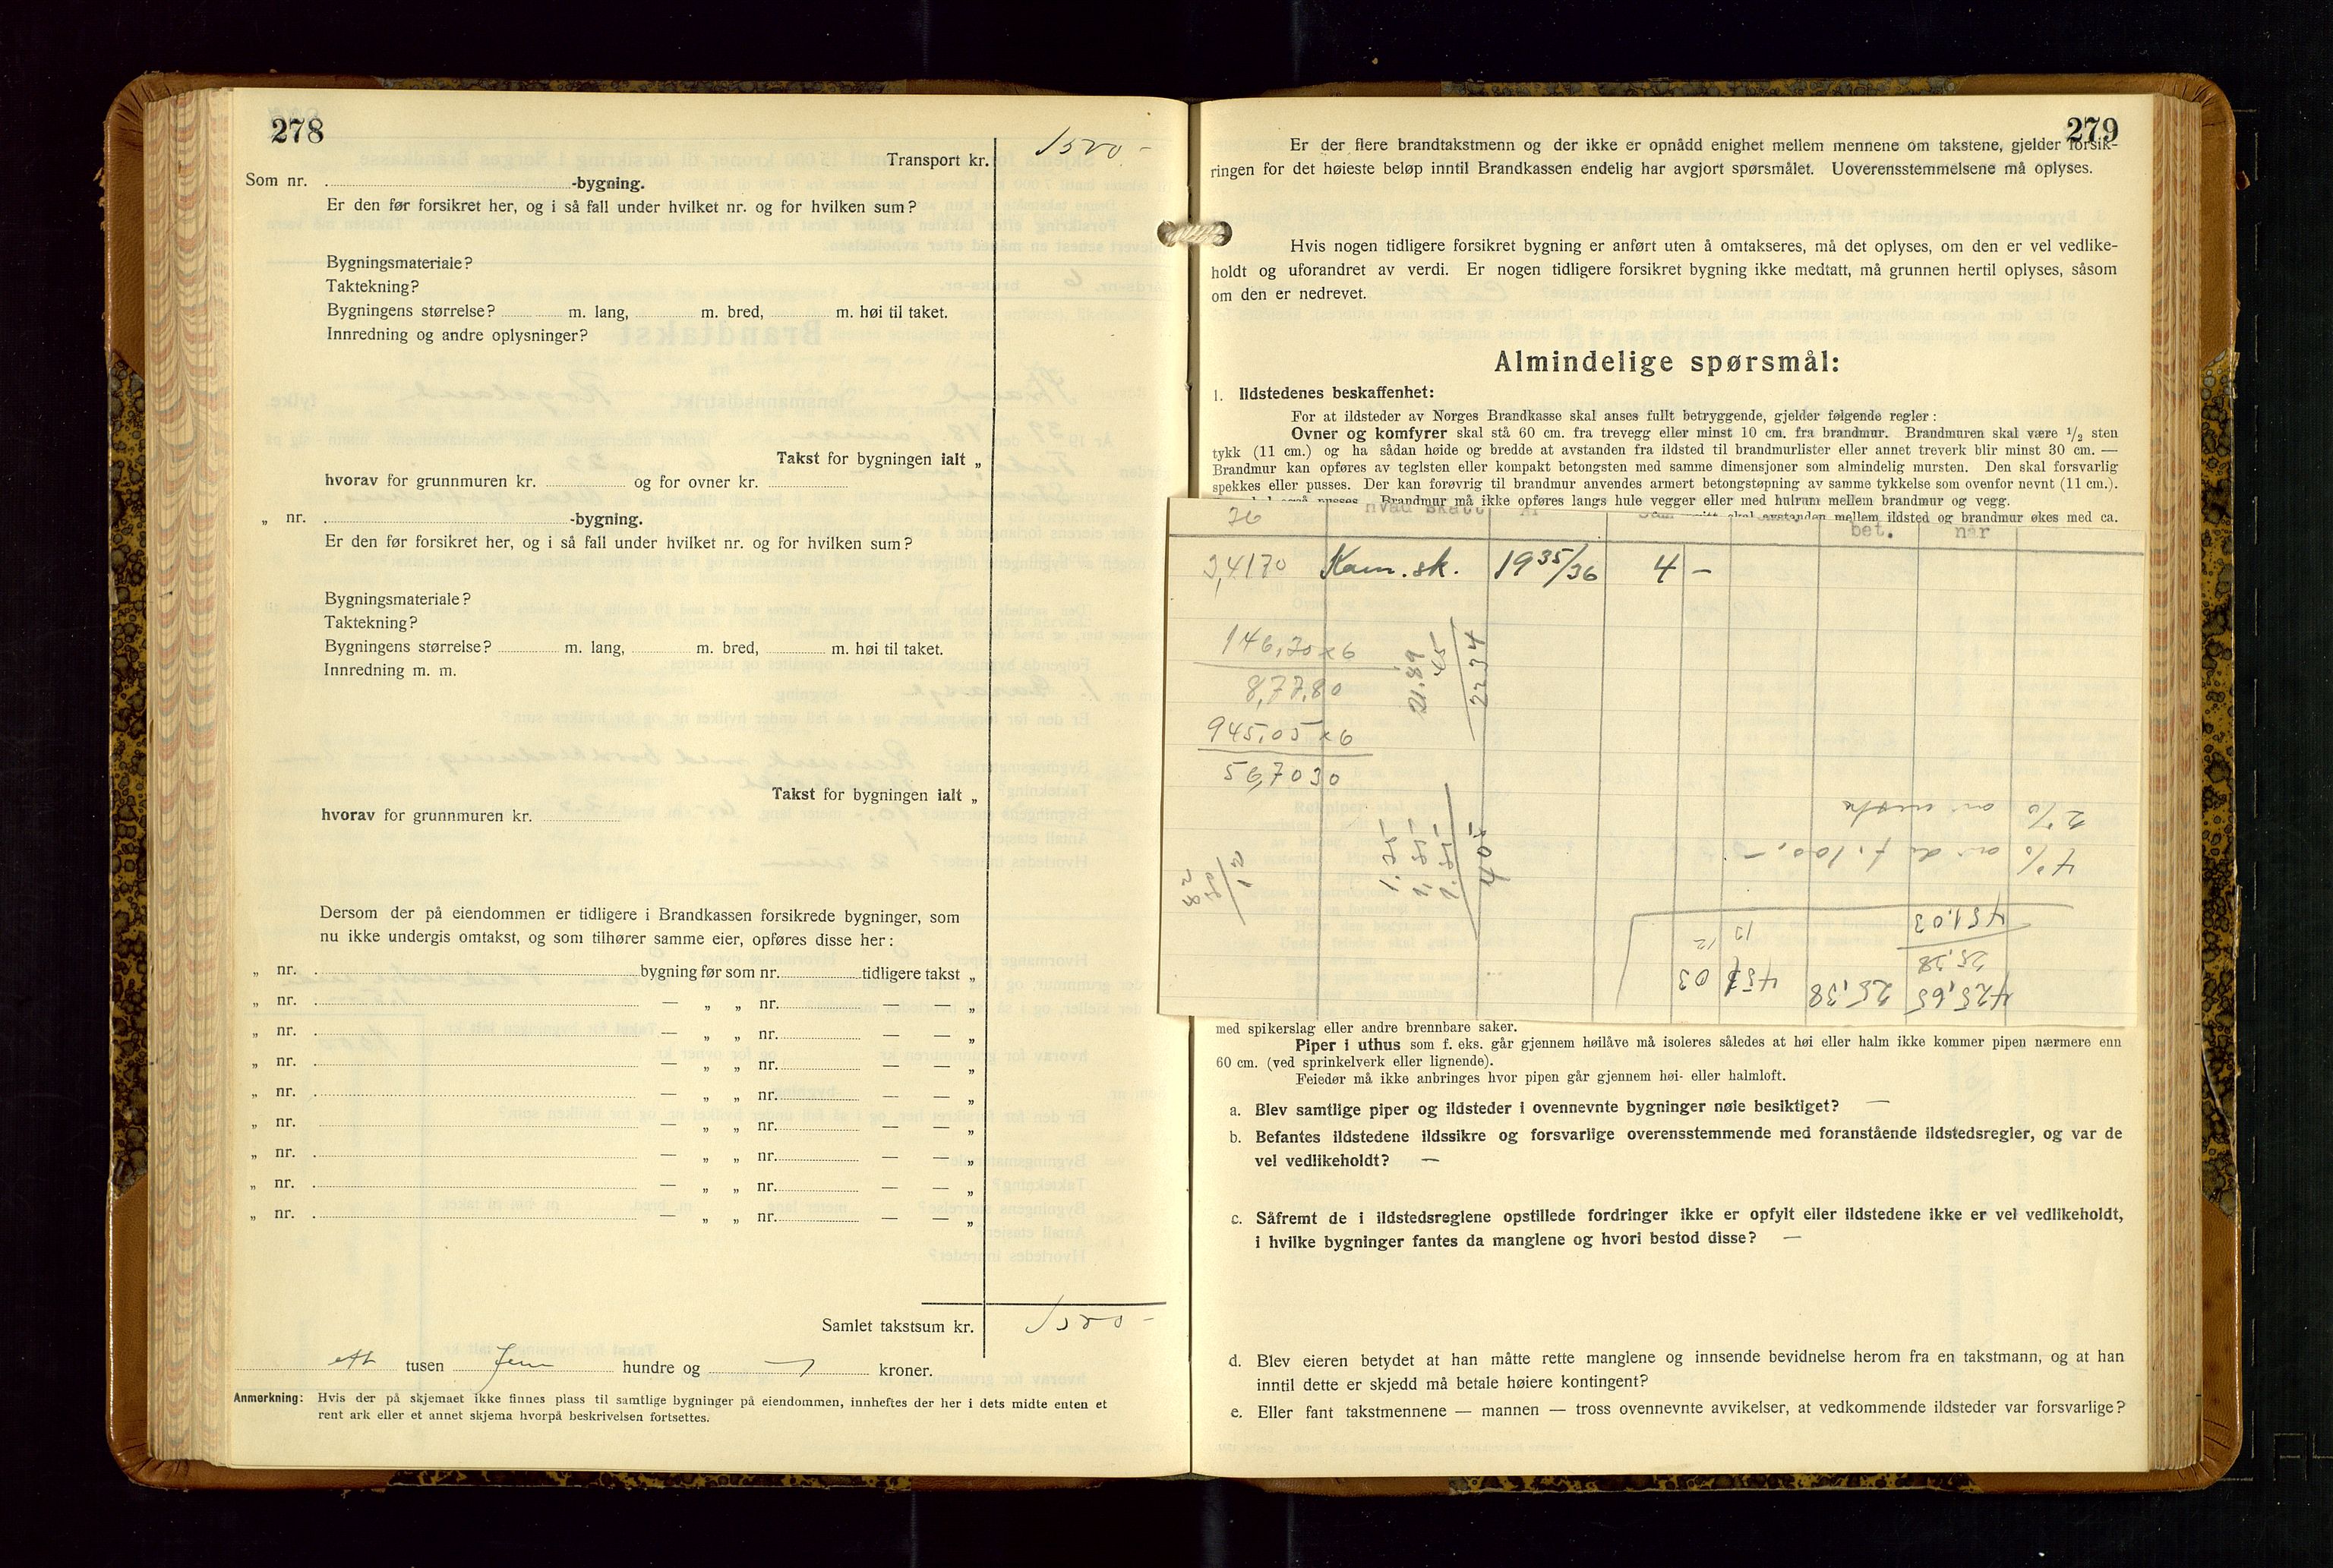 278
Transport kr. 1500 -
Som nr. -bygning.
Er den før forsikret her, og i så fall under hvilket nr. og for hvilken sum?
Bygningsmateriale?
Taktekning?
Bygningens størrelse? m. lang, m. bred, m. høi til taket.
Innredning og andre oplysninger?
Takst for bygningen ialt „
hvorav for grunnmuren kr. og for ovner kr.
„ nr. -bygning.
Er den før forsikret her, og i så fall under hvilket nr. og for hvilken sum?
Bygningsmateriale?
Taktekning?
Bygningens størrelse? m. lang, m. bred, m. høi til taket.
Innredning m. m.
Takst for bygningen ialt „
hvorav for grunnmuren kr.
Dersom der på eiendommen er tidligere i Brandkassen forsikrede bygninger, som
nu ikke undergis omtakst, og som tilhører samme eier, opføres disse her:
„ nr. bygning før som nr. tidligere takst „
„ nr. — „ „ nr. — — „
„ nr. — „ „ nr. — — „
„ nr. — „ „ nr. — — „
„ nr. — „ „ nr. — — „
„ nr. — „ „ nr. — — „
„ nr. — „ „ nr. — — „
„ nr. — „ „ nr. — — „
„ nr. — „ „ nr. — — „
Samlet takstsum kr. 1500 -
ett tusen fem hundre og — kroner.
Anmerkning: Hvis der på skjemaet ikke finnes plass til samtlige bygninger på eiendommen, innheftes der her i dets midte enten et
rent ark eller et annet skjema hvorpå beskrivelsen fortsettes.
279
Er der flere brandtakstmenn og der ikke er opnådd enighet mellem mennene om takstene, gjelder forsik-
ringen for det høieste beløp inntil Brandkassen endelig har avgjort spørsmålet. Uoverensstemmelsene må oplyses.
Hvis nogen tidligere forsikret bygning er anført uten å omtakseres, må det oplyses, om den er vel vedlike-
holdt og uforandret av verdi. Er nogen tidligere forsikret bygning ikke medtatt, må grunnen hertil oplyses, såsom
om den er nedrevet.
Almindelige spørsmål:
1. Ildstedenes beskaffenhet:
For at ildsteder av Norges Brandkasse skal anses fullt betryggende, gjelder følgende regler:
Ovner og komfyrer skal stå 60 cm. fra trevegg eller minst 10 cm. fra brandmur. Brandmuren skal være 1/2 sten
tykk (11 cm.) og ha sådan høide og bredde at avstanden fra ildsted til brandmurlister eller annet treverk blir minst 30 cm. —
Brandmur kan opføres av teglsten eller kompakt betongsten med samme dimensjoner som almindelig mursten. Den skal forsvarlig
spekkes eller pusses. Der kan forøvrig til brandmur anvendes armert betongstøpning av samme tykkelse som ovenfor nevnt (11 cm.).
også pusses. Brandmur må ikke opføres langs hule vegger eller med hulrum mellem brandmur og vegg.
skal avstanden mellem ildsted og brandmur økes med ca.
hvad skatt bet. når
Kom. sk. 1935/36 4 -
146,30 x 6
8,77,80
945,05 x 6
56,7030
21.89
45
2234
405
2% av
4% av de f. 100,-
451.03
25,38
425,65 25,38 451 03
med spikerslag eller andre brennbare saker.
Piper i uthus som f. eks. går gjennem høilåve må isoleres således at høi eller halm ikke kommer pipen nærmere enn
60 cm. (ved sprinkelverk eller lignende).
Feiedør må ikke anbringes hvor pipen går gjennem høi- eller halmloft.
a. Blev samtlige piper og ildsteder i ovennevnte bygninger nøie besiktiget? —
b. Befantes ildstedene ildssikre og forsvarlige overensstemmende med foranstående ildstedsregler, og var de
vel vedlikeholdt? —
c. Såfremt de i ildstedsreglene opstillede fordringer ikke er opfylt eller ildstedene ikke er vel vedlikeholdt,
i hvilke bygninger fantes da manglene og hvori bestod disse? —
d. Blev eieren betydet at han måtte rette manglene og innsende bevidnelse herom fra en takstmann, og at han
inntil dette er skjedd må betale høiere kontingent?
e. Eller fant takstmennene — mannen — tross ovennevnte avvikelser, at vedkommende ildsteder var forsvarlige?